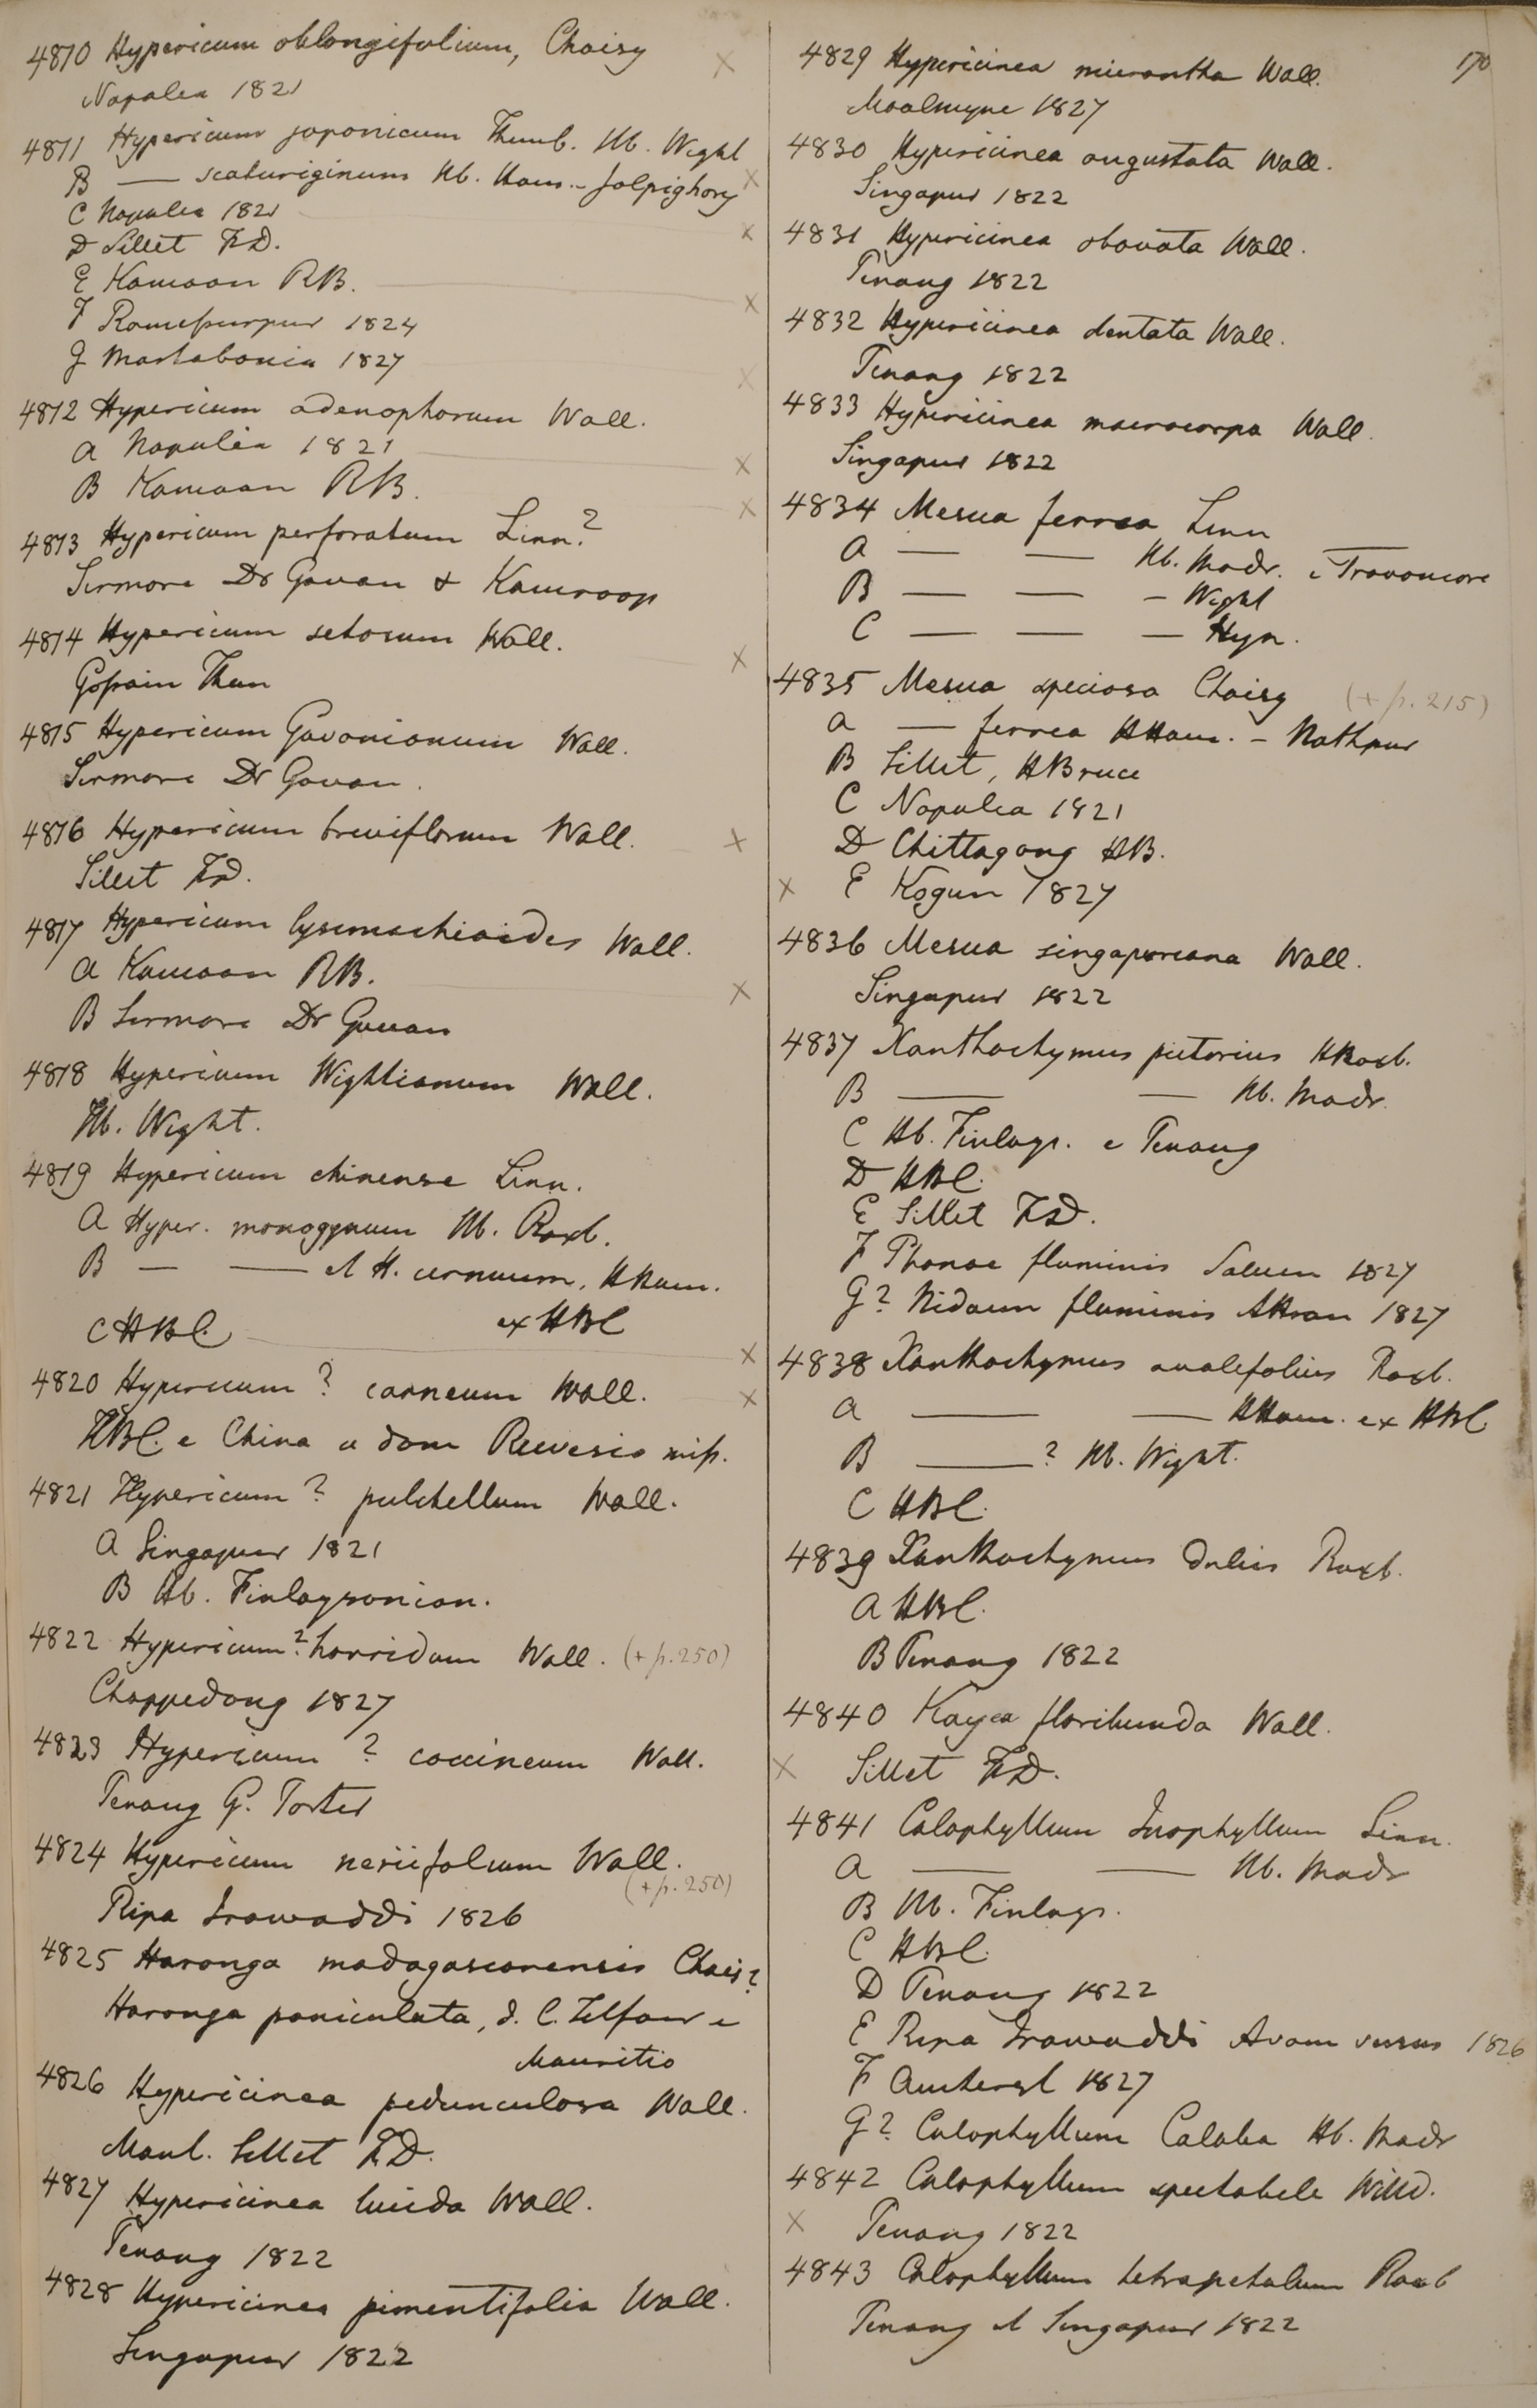 4810 Hypericum oblongifolium, Choisy
Napalea 1821
4811 Hypericum japonicum Thunb. Hb. Wight
B — scaturiginum Hb. Ham. - Jolpighory
C Napalea 1821
D Sillet FD.
E Kamaon RB.
F Ramessurpur 1824
G Martabania 1827
4812 Hypericum adenophorum Wall.
a Napalia 1821
B Kamaon RB.
4813 Hypericum perforatum Linn.?
Sirmore Dr Govan & Kamroop
4814 Hypericum setosum Wall.
Gossain Than
4815 Hypericum Govanianum Wall.
Sirmore Dr Govan.
4816 Hypericum breviflorum Wall.
Sillet FD.
4817 Hypericum lysimachioides Wall.
a Kamaon RB.
B Sirmore Dr Govan
4818 Hypericum Wightianum Wall.
Hb. Wight.
4819 Hypericum chinense Linn.
A Hyper. monogynum Hb. Roxb.
B — — et H. cernuum, HHam.
ex HBC
C HBC.
4820 Hypericum ? carneum Wall.
HBC. e China a dom Reevesio miss.
4821 Hypericum ? pulchellum Wall.
A Singapur 1821
B Hb. Finlaysonian.
4822 Hypericum? horridum Wall. (+ p. 250)
Chappedong 1827
4823 Hypericum ? coccineum Wall.
Penang G. Porter
4824 Hypericum neriifolium Wall.
(+ p. 250)
Ripa Irawaddi 1826
4825 Haronga madagascarensis Chois?
Haronga paniculata, d. C. Telfair e
Mauritio
4826 Hypericinea pedunculosa Wall.
Mont. Sillet FD.
4827 Hypericinea lucida Wall.
Penang 1822
4828 Hypericinea pimentifolia Wall.
Singapur 1822
170
4829 Hypericinea micrantha Wall.
Moalmyne 1827
4830 Hypericinea angustata Wall.
Singapur 1822
4831 Hypericinea obovata Wall.
Penang 1822
4832 Hypericinea dentata Wall.
Penang 1822
4833 Hypericinea macrocarpa Wall.
Singapur 1822
4834 Mesua ferrea Linn
a — — Hb. Madr. e Travancore
B — — — Wight
C — — — Heyn.
4835 Mesua speciosa Choisy (+ p. 215)
a — ferrea HHam. - Nathpur
B Sillet, HBruce
C Napalea 1821
D Chittagong HB.
E Kogun 1827
4836 Mesua singaporeana Wall.
Singapur 1822
4837 Xanthochymus pictorius HRoxb.
B — — Hb. Madr.
C Hb. Finlays. e Penang
D HBC.
E Sillet FD.
F Phanoe fluminis Saluen 1827
G? Nidaun fluminis Attran 1827
4838 Xanthochymus ovalifolius Roxb.
a — — HHam. ex HBC
B — ? Hb. Wight.
C HBC.
4839 Xanthochymus dulcis Roxb.
A HBC.
B Penang 1822
4840 Kayea floribunda Wall.
Sillet FD.
4841 Calophyllum Inophyllum Linn.
a — — Hb. Madr
B Hb. Finlays.
C HBC.
D Penang 1822
E Ripa Irawaddi Avam versus 1826
F Amherst 1827
G? Calophyllum Calaba Hb. Madr
4842 Calophyllum spectabile Willd.
Penang 1822
4843 Calophyllum tetrapetalum Roxb
Penang et Singapur 1822